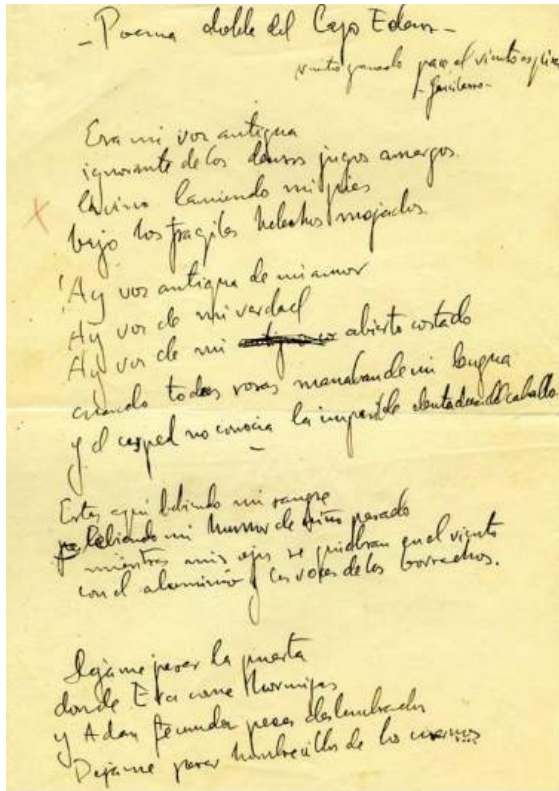 - Poema doble del Lago Edem -
nuestro ganado pace, el viento espira
- Garcilaso -
Era mi voz antigua
ignorante de los densos jugos amargos.
lamiendo mis pies
bajo los fragiles helechos mojados.
¡Ay voz antigua de mi amor
Ay voz de mi verdad
Ay voz de mi abierto costado
cuando todas rosas manaban de mi lengua
y el cesped no conocia la impasible dentadura del caballo.
Estas aqui bebiendo mi sangre
bebiendo mi humor de niño pesado
mientras mis ojos se quiebran en el viento
con el aluminio y las voces de los borrachos.
Dejame pasar la puerta
donde Eva come hormigas
y Adan fecunda peces deslumbrados
Dejame pasar hombrecillos de los